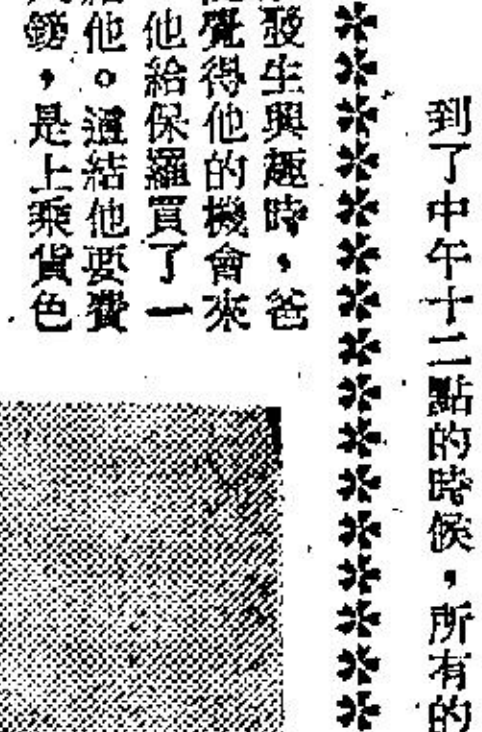 到了中午十二點的時候，所有的
發生興趣時，爸
覺得他的機會來
他給保羅買了一
他。遞給他要費
鎊，是上乘貨色